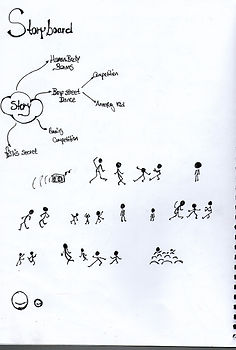 Storyboard
Human Body
Boy street
Dance
Competition
Annoying Kid
Story
Family
Competition
Secret